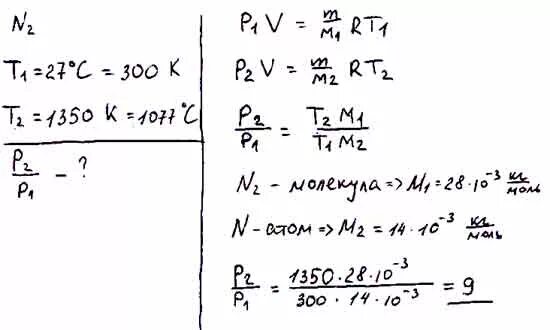 N₂
T₁ = 27°C = 300 K
T₂ = 1350 K = 1077°C
P₂/P₁ - ?
P₁ V = m/M₁ RT₁
P₂ V = m/M₂ RT₂
P₂/P₁ = T₂ M₁/T₁ M₂
N₂ - молекула => M₁ = 28·10⁻³ кг/моль
N - атом => M₂ = 14·10⁻³ кг/моль
P₂/P₁ = 1350·28·10⁻³/300·14·10⁻³ = 9